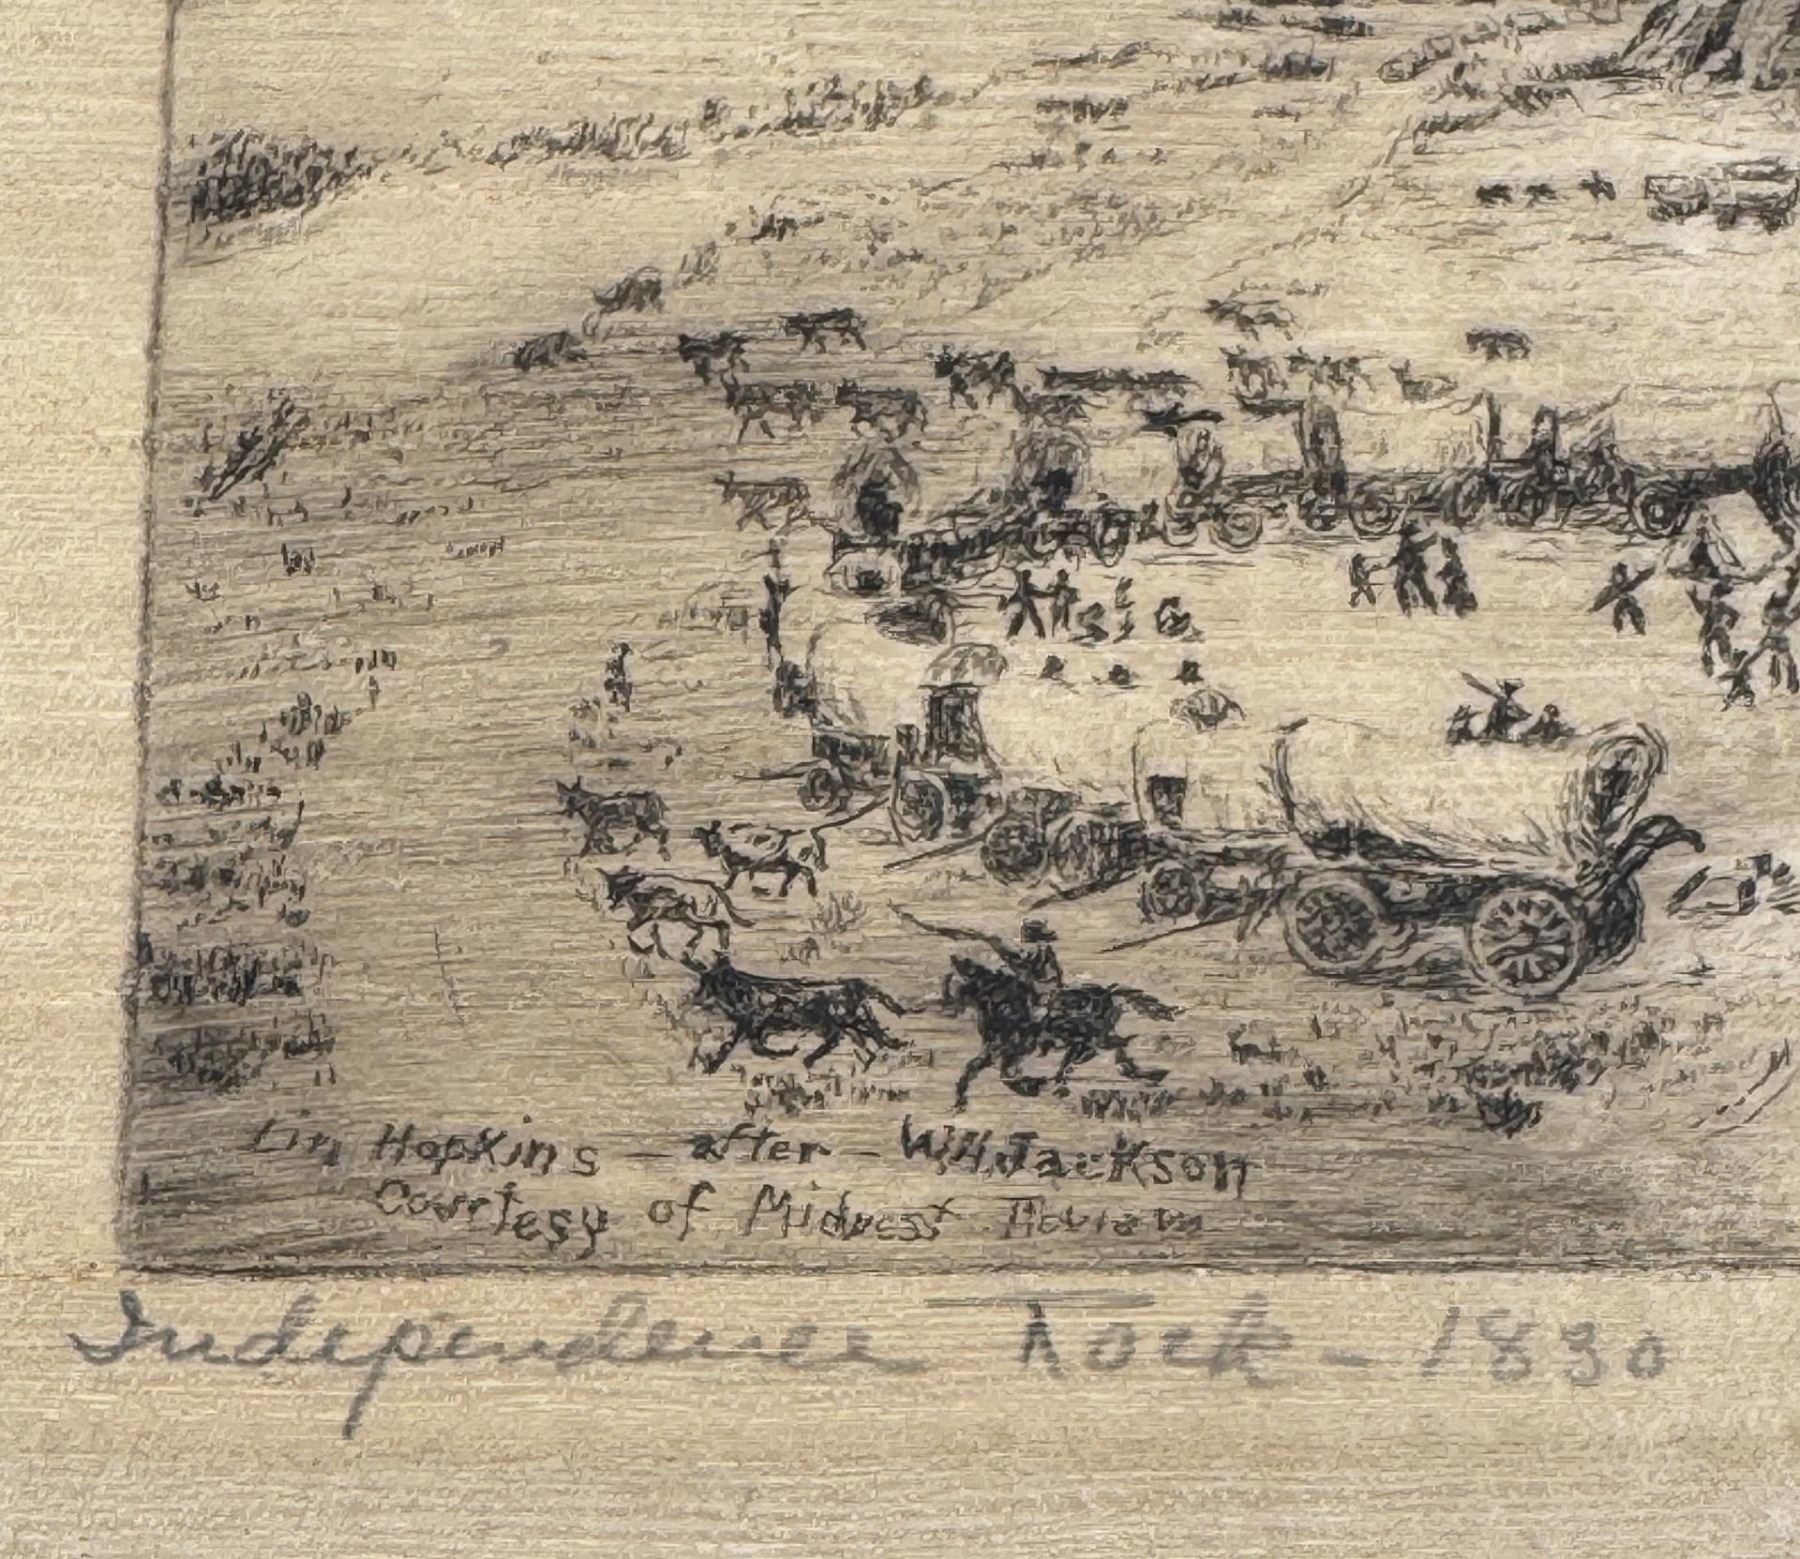 Lin Hopkins — after — W.H. Jackson
Courtesy of Midwest Review
Independence Rock - 1830